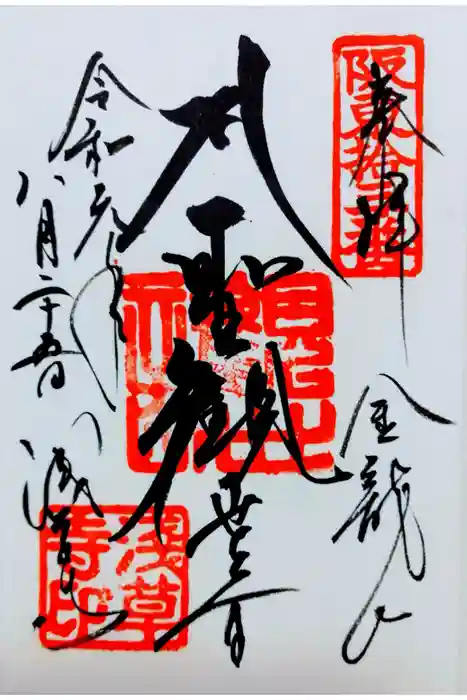 奉拝
阪東拾三番
金龍山
聖観世音
令和元年
八月二十五日
浅草寺
浅草寺印